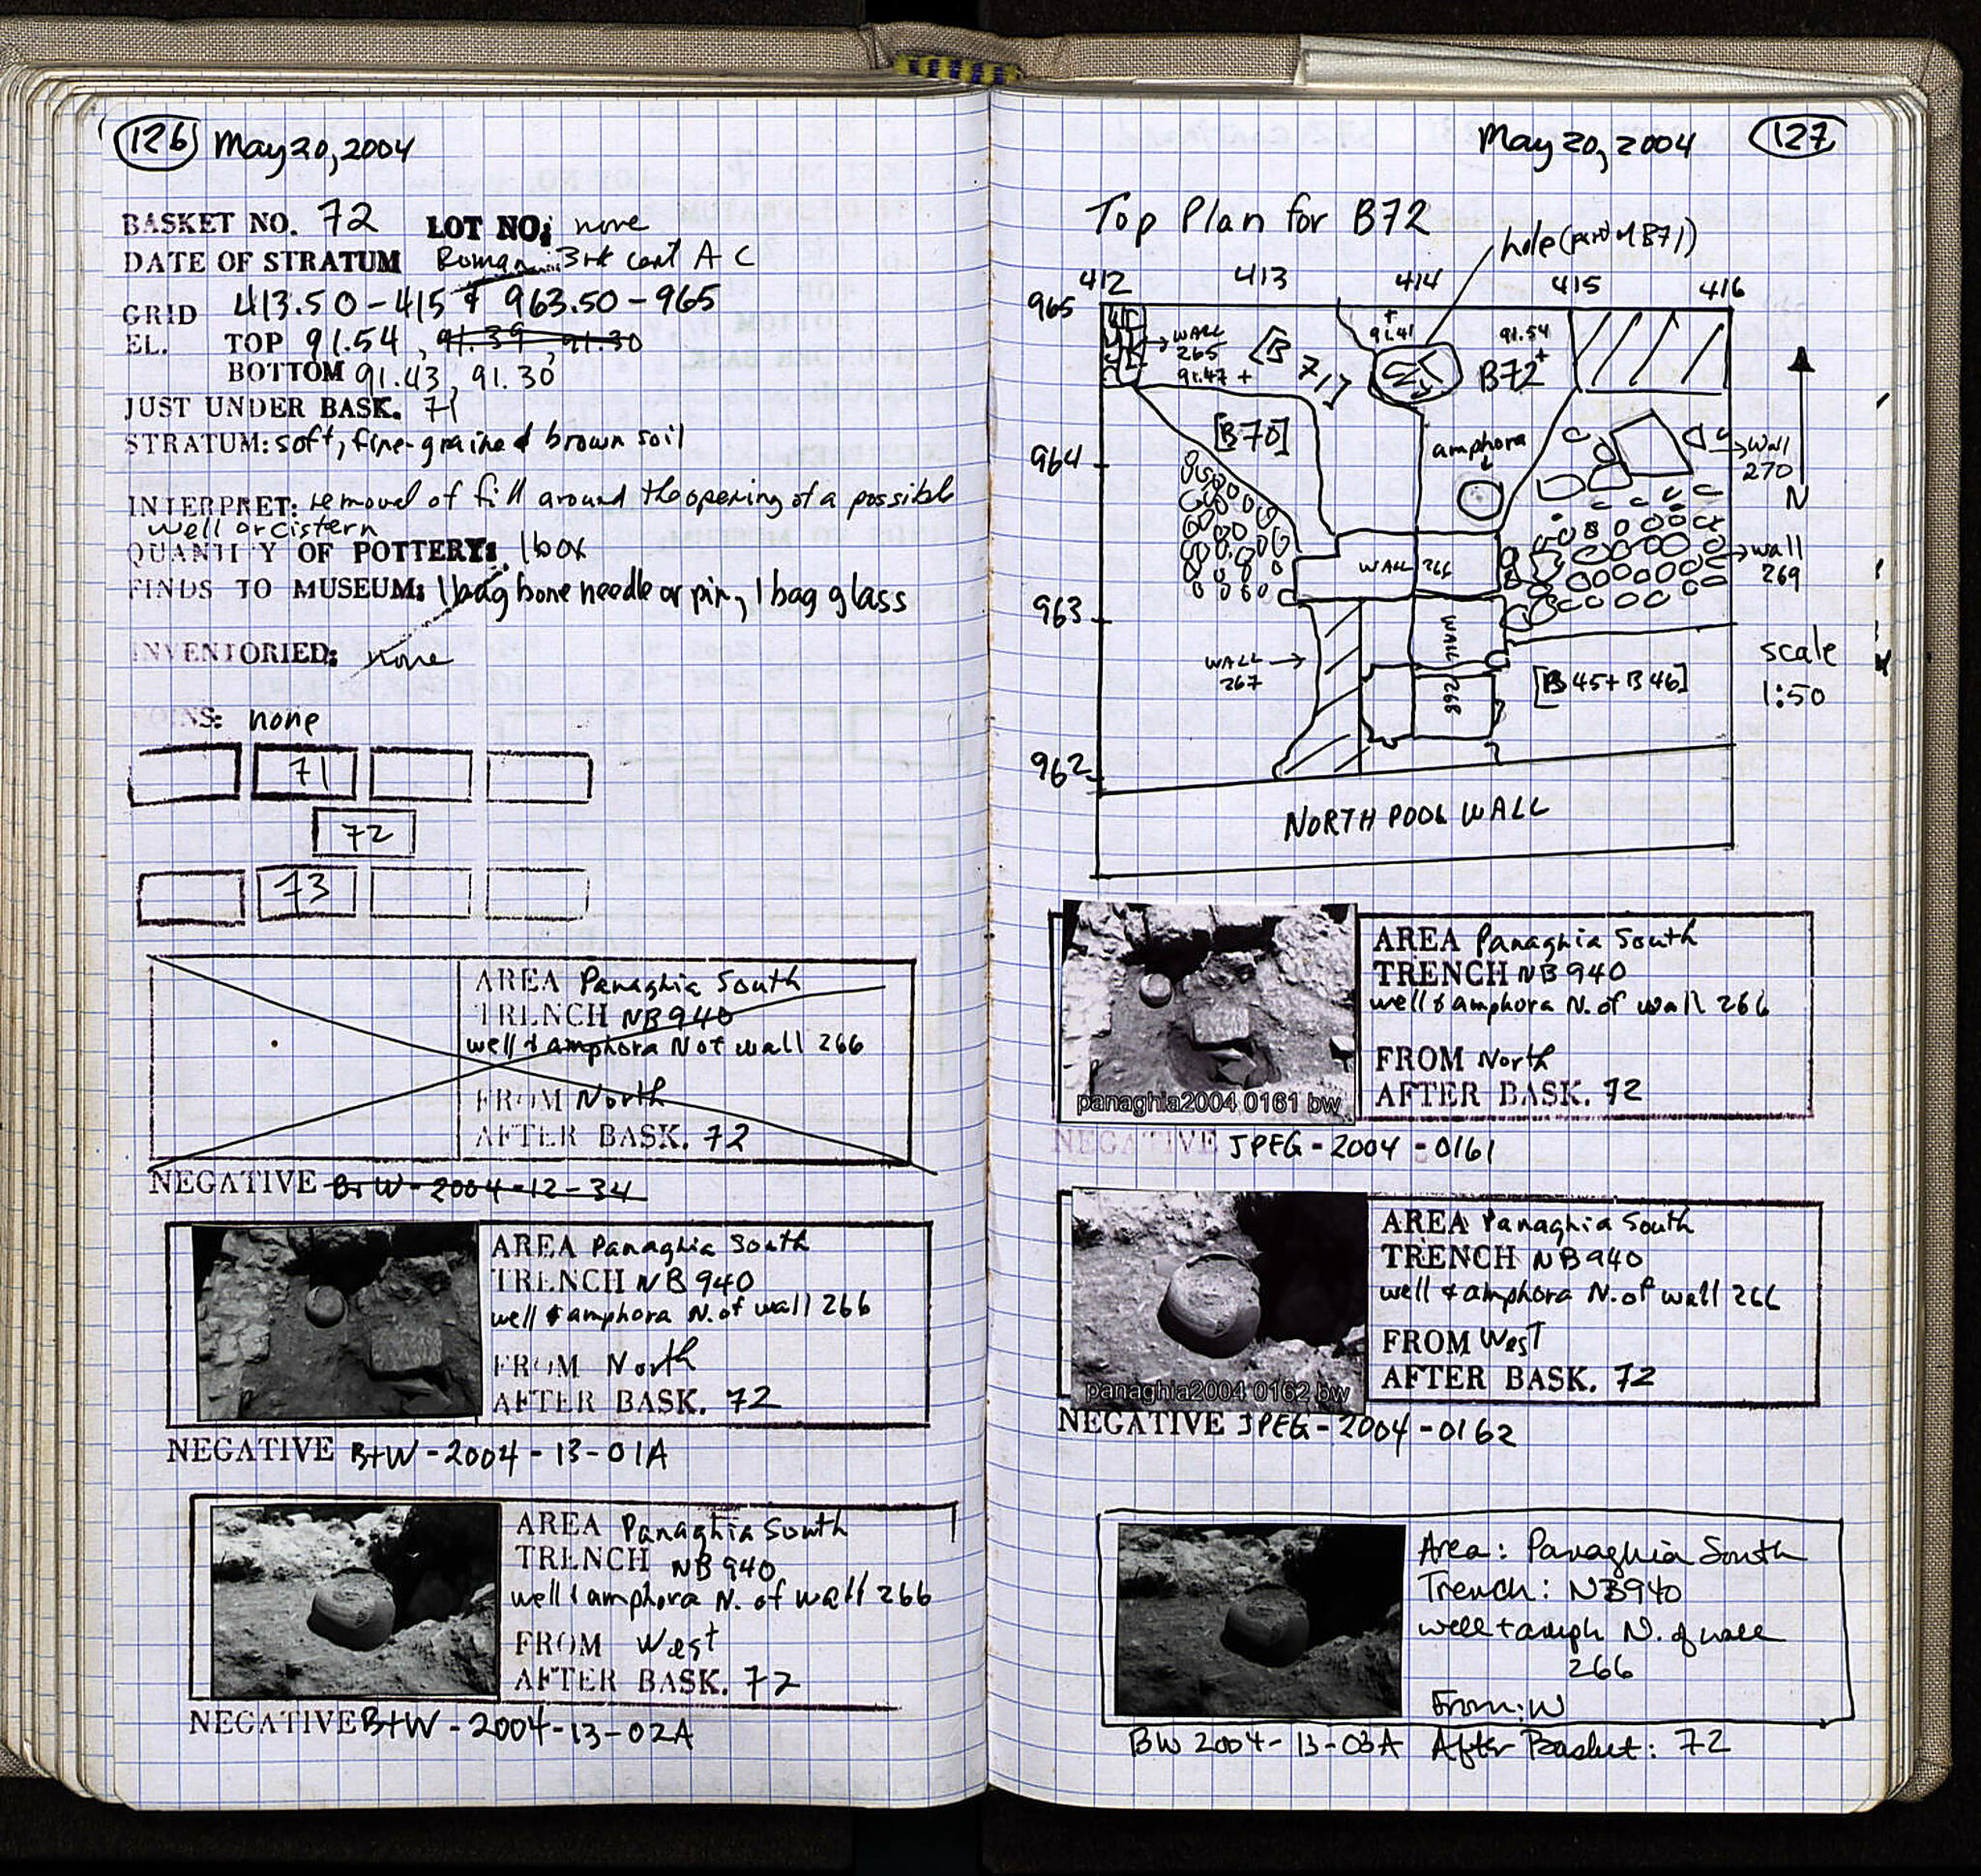 126 May 20, 2004
BASKET NO. 72 LOT NO: none
DATE OF STRATUM Roman: 3rd cent A C
GRID 413.50-415 & 963.50-965
EL. TOP 91.54, 91.39, 91.30
BOTTOM 91.43, 91.30
JUST UNDER BASK. 71
STRATUM: soft, fine-grained brown soil
INTERPRET: removal of fill around the opening of a possible
well or cistern
QUANTITY OF POTTERY: 1 box
FINDS TO MUSEUM: 1 bag bone needle or pin, 1 bag glass
INVENTORIED: none
COINS: none
71
72
73
AREA Panaghia South
TRENCH NB 940
well & amphora N of wall 266
FROM North
AFTER BASK. 72
NEGATIVE B+W-2004-12-34
AREA Panaghia South
TRENCH NB 940
well & amphora N. of wall 266
FROM North
AFTER BASK. 72
NEGATIVE B+W-2004-13-01A
AREA Panaghia South
TRENCH NB 940
well & amphora N. of wall 266
FROM West
AFTER BASK. 72
NEGATIVE B+W-2004-13-02A
May 20, 2004 127
Top Plan for B72
hole (part of B71)
412 413 414 415 416
965
964
963
962
WALL
265
91.47 +
[B 71]
+
91.41
91.54
+
B72
[B70]
amphora
wall
270
N
WALL 266
wall
269
WALL
267
WALL 268
[B45+B46]
scale
1:50
NORTH POOL WALL
AREA Panaghia South
TRENCH NB 940
well & amphora N. of wall 266
FROM North
AFTER BASK. 72
panaghia2004 0161 bw
NEGATIVE JPEG-2004-0161
AREA Panaghia South
TRENCH NB 940
well & amphora N. of wall 266
FROM West
AFTER BASK. 72
panaghia2004 0162 bw
NEGATIVE JPEG-2004-0162
Area: Panaghia South
Trench: NB940
well + amph N. of wall
266
From: W
BW 2004-13-03A After Basket: 72